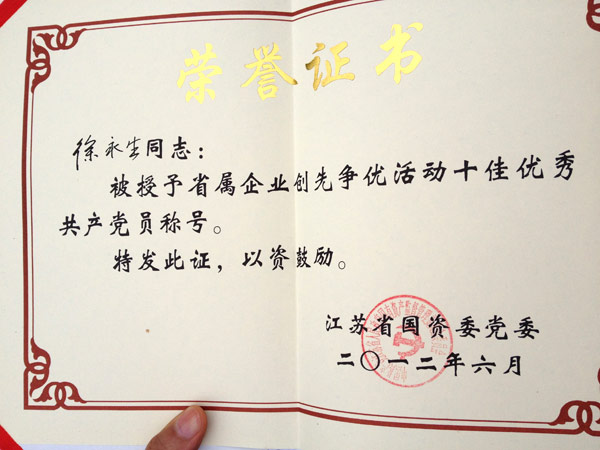 荣誉证书
徐永生同志：
被授予省属企业创先争优活动十佳优秀
共产党员称号。
特发此证，以资鼓励。
江苏省国资委党委
二〇一二年六月